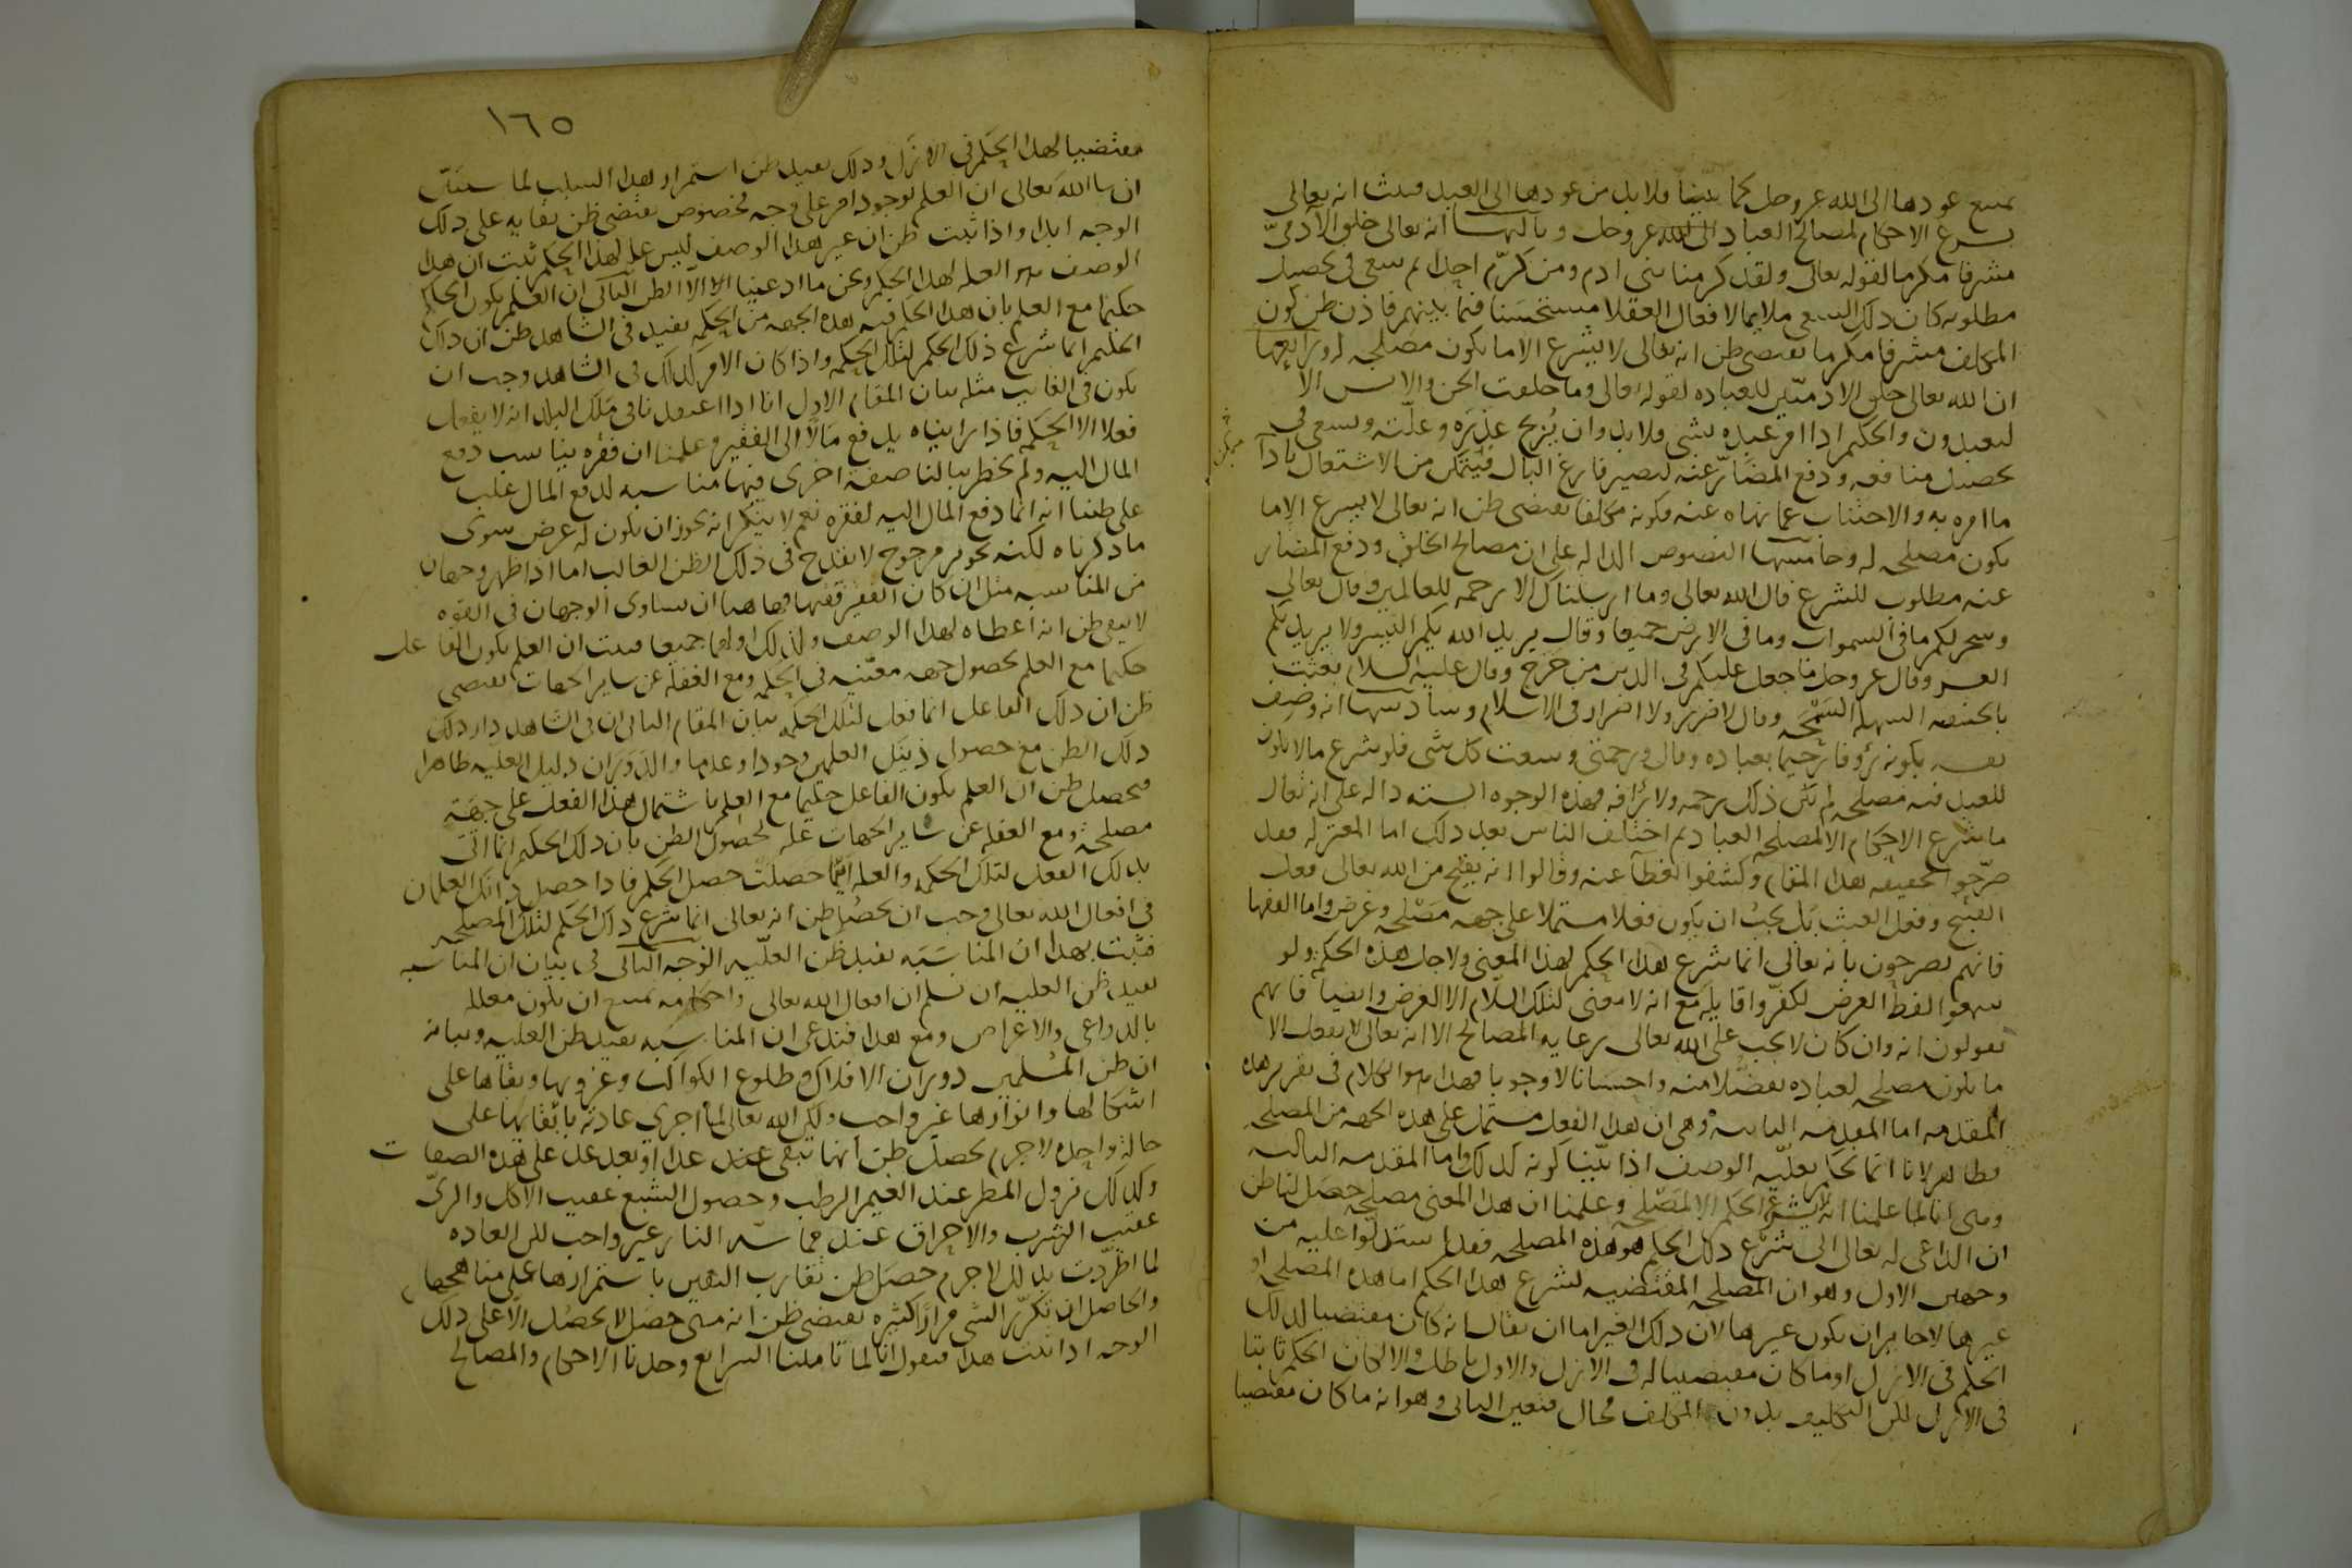 يمتنع عودها الى الله عز وجل كما بينا فلا بد من عودها الى العبد فثبت انه تعالى
شرع الاحكام لمصالح العباد وثالثها انه تعالى خلق الآدمىّ
مشرفا مكرما لقوله تعالى ولقد كرمنا بنى ادم ومن كرّم احدا ثم سعى فى تحصيل
مطلوبه كان ذلك السعى ملايما لافعال العقلا مستحسَنا فيما بينهم فاذن ظن كون
المكلف مشرفا مكرما يقتضى ظن انه تعالى لا يشرع الا ما يكون مصلحه له ورابعها
ان الله تعالى خلق الادميّين للعباده لقوله تعالى وما خلقت الجن والانس الا
ليعبدون والحكيم اذا امر عبده بشى فلا بد وان يُزيح عذرَه وعلّته ويسعى فى
تحصيل منافعه ودفع المضارّ عنه ليصير فارغ البال فيتمكن من الاشتغال باداء
ما امره به والاجتناب عما نهاه عنه فكونه مكلفا يقتضى ظن انه تعالى لا يشرع الا ما
يكون مصلحه له وخامسها النصوص الداله على ان مصالح الخلق ودفع المضار
عنه مطلوب للشرع قال الله تعالى وما ارسلناك الا رحمه للعالمين وقال تعالى
وسخر لكم ما فى السموات وما فى الارض جميعا وقال يريد الله بكم اليسر ولا يريد بكم
العسر وقال عز وجل ما جعل عليكم فى الدين من حَرَج وقال عليه السلام بعثت
بالحنيفيه السهله السَمْحَه وقال لا ضرر ولا اضرار فى الاسلام وسادسها انه وصف
نفسه بكونه رؤوفا رحيما بعباده وقال ورحمتى وسعت كل شى فلو شرع ما لا يكون
للعبد فيه مصلحه لم يكن ذلك رحمه ولا رأفه فهذه الوجوه السته داله على انه تعالى
ما شرع الاحكام الا لمصلحه العباد ثم اختلف الناس بعد ذلك اما المعتزله فقد
صرّحوا بحقيقه هذا المقام وكشفوا الغطآ عنه وقالوا انه يقبح من الله تعالى فعل
القبيح وفعل العبث بَل يجبُ ان يكون فعله مشتملا على جهه مَصْلحه وغرض واما الفقها
فانهم يصرحون بانه تعالى انما شرع هذا الحكم لهذا المعنى ولاجل هذه الحكمه ولو
سمعوا لفظ الغرض لكفّروا قايله مع انه لا معنى لتلك اللام الا الغرض وايضا فانهم
يقولون انه وان كان لا يجب على الله تعالى رعايه المصالح الا انه تعالى لا يفعل الا
ما يكون مصلحه لعباده تفضّلا منه واحسَانا لا وجوبا فهذا هو الكلام فى تقرير هذه
المقدمه اما المقدمه الثانيه وهى ان هذا الفعل مشتمل على هذه الجهه من المصلحه
فظاهر لانا انما نحكم بعلّيه الوصف اذا بيّنا كونه كذلك واما المقدمه الثالثه
وهى انا لما علمنا انه لا يشرع الحكم الا لمصْلحه وعلمنا ان هذا المعنى مصلحه حصل لنا ظن
ان الداعى له تعالى الى شرْع ذلك الحكم هو هذه المصلحه فقد استدلّوا عليه من
وجهين الاول وهو ان المصلحه المقتضيه لشرع هذا الحكم اما هذه المصلحه او
غيرها لا جايز ان يكون غيرها لان ذلك الغير اما ان يقال انه كان مقتضيا لذلك
الحكم فى الازل او ما كان مقتضيا له فى الازل والاول باطل والا لكان الحكم ثابتا
فى الازل لكن التكليف بدون المكلف محال فتعين الثانى وهو انه ما كان مقتضيا
١٦٥
مقتضيا لهذا الحكم فى الازل وذلك يفيد ظن استمرار هذا السلب لما سنبيّن
ان شا الله تعالى ان العلم بوجود امر على وجه مخصوص يقتضى ظن بقايه على ذلك
الوجه ابدا واذا ثبت ظن ان غير هذا الوصف ليس عله لهذا الحكم ثبت ان هذا
الوصف هو العله لهذا الحكم ونحن ما ادعينا الا الظن الثانى ان العلم بكون الحاكم
حكيما مع العلم بان هذا الحكم فيه هذه الجهه من الحكمه يفيد فى الشاهد ظن ان ذاك
الحكيم انما شرع ذلك الحكم لتلك الحكمه واذا كان الامر كذلك فى الشاهد وجب ان
يكون فى الغايب مثله بيان المقام الاول انا اذا اعتقدنا فى مَلك البلد انه لا يفعل
فعلا الا لحكمه فاذا رايناه يدفع مَالًا الى الفقير وعلمنا ان فقره يناسب دفع
المال اليه ولم يخطر ببالنا صفة اخرى فيها مناسبه لدفع المال غلب
على ظننا انه انما دفع المال اليه لفقره نعم لا ينكر انه يجوز ان يكون له غرض سوى
ما ذكرناه لكنه تجويز مرجوح لا يقدح فى ذلك الظن الغالب اما اذا ظهر وجهان
من المناسبه مثل ان كان الفقير فقيها فهاهنا ان تساوى الوجهان فى القوه
لا يبقى ظن انه اعطاه لهذا الوصف ولذلك او لهما جميعا فثبت ان العلم بكون الفاعل
حكيما مع العلم بحصول جهه معيّنه فى الحكمه ومع الغفله عن ساير الجهات يقتضى
ظن ان ذلك الفاعل انما فعل لتلك الحكمه بيان المقام الثانى ان فى الشاهد دار ذلك
ذلك الظن مع حصول ذينك العلمين وجودا وعدما والدوَران دليل العليّه ظاهرا
فيحصل ظن ان العلم بكون الفاعل حكيما مع العلم باشتمال هذا الفعل على جهَة
مصلحة ومع الغفله عن ساير الجهات عله لحصول الظن بان ذلك الحكيم انما اتى
بذلك الفعل لتلك الحكمه والعله اينما حَصلَتْ حصل الحكم فاذا حصل ذانك العلمان
فى افعال الله تعالى وجب ان يحصُل ظن انه تعالى انما شرع ذلك الحكم لتلك المصلحه
فثبت بهذا ان المناسَبَه تفيد ظن العلّيه الوجه الثانى فى بيان ان المناسبه
تفيد ظن العليه ان نسلم ان افعال الله تعالى واحكامه يمتنع ان تكون معلله
بالدواعى والاغراض ومع هذا فندعى ان المناسَبه تفيد ظن العليه وبيانه
ان ظن المسلمين دوران الافلاك وطلوع الكواكب وغروبها وبقاها على
اشكالها وانوارها غير واجب ولكن الله تعالى لما اجرى عادته بابقائها على
حالة واحده لا جرم يحصل ظن انها تبقى غدا او بعد غد على هذه الصفات
وكذلك نزول المطر عند الغيم الرطب وحصول الشبع عقيب الاكل والرىّ
عقيب الشرب والاحراق عند مماسّه النار غير واجب لكن العاده
لما اطّردت بذلك لا جرم حصل ظن يقارب اليقين باستمرارها على مناهجها
والحاصل ان تكرّر الشى مرارًا كثيره يقتضى ظن انه متى حصَل لا يحصُل الا على ذلك
الوجه اذا ثبت هذا فنقول انا لما تاملنا الشرايع وجدنا الاحكام والمصالح